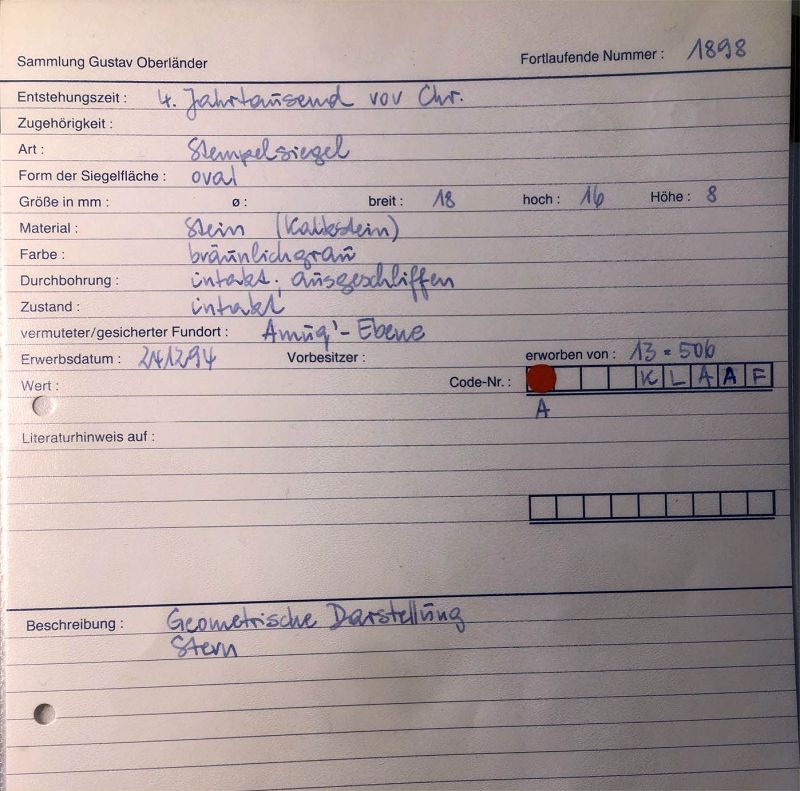 Sammlung Gustav Oberländer Fortlaufende Nummer : 1898
Entstehungszeit : 4. Jahrtausend vor Chr.
Zugehörigkeit :
Art : Stempelsiegel
Form der Siegelfläche : oval
Größe in mm : ø : breit : 18 hoch : 16 Höhe : 8
Material : Stein (Kalkstein)
Farbe : bräunlichgrau
Durchbohrung : intakt; ausgeschliffen
Zustand : intakt
vermuteter/gesicherter Fundort : Amuq'-Ebene
Erwerbsdatum : 241294 Vorbesitzer : erworben von : 13 = 506
Wert : Code-Nr. : K L A A F
A
Literaturhinweis auf :
Beschreibung : Geometrische Darstellung
Stern